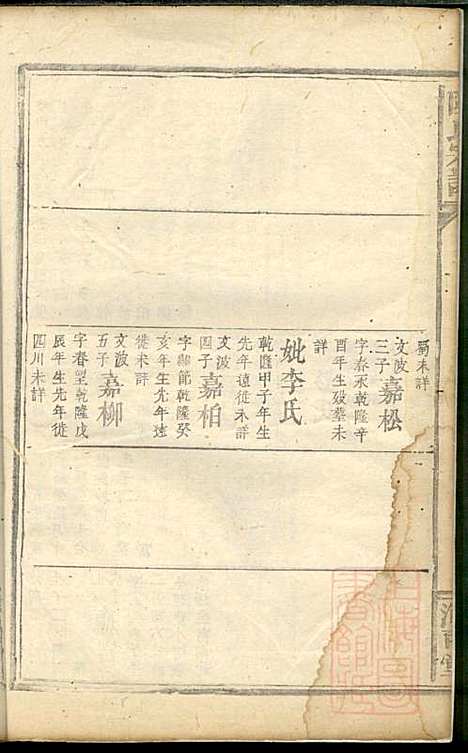 蜀未詳
文波三子嘉松
字春永乾隆辛
酉年生歿塟未
詳
妣李氏
乾隆甲子年生
先年遠徙未詳
文波四子嘉栢
字節乾隆癸
亥年生先年遠
徙未詳
文波五子嘉柳
字春望乾隆戊
辰年生先年徙
四川未詳